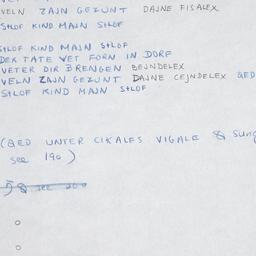 VELN ZAJN GEZUNT DAJNE FISALEX
SHLOF KIND MAJN SHLOF
SHLOF KIND MAJN SHLOF
DER TATE VET FORN IN DORF
VETER DIR BRENGEN BEJNDELEX
VELN ZAJN GEZUNT DAJNE CEJNDELEX
SHLOF KIND MAJN SHLOF
(QED UNTER CIKALES VIGALE & sung
see 190)
see 200